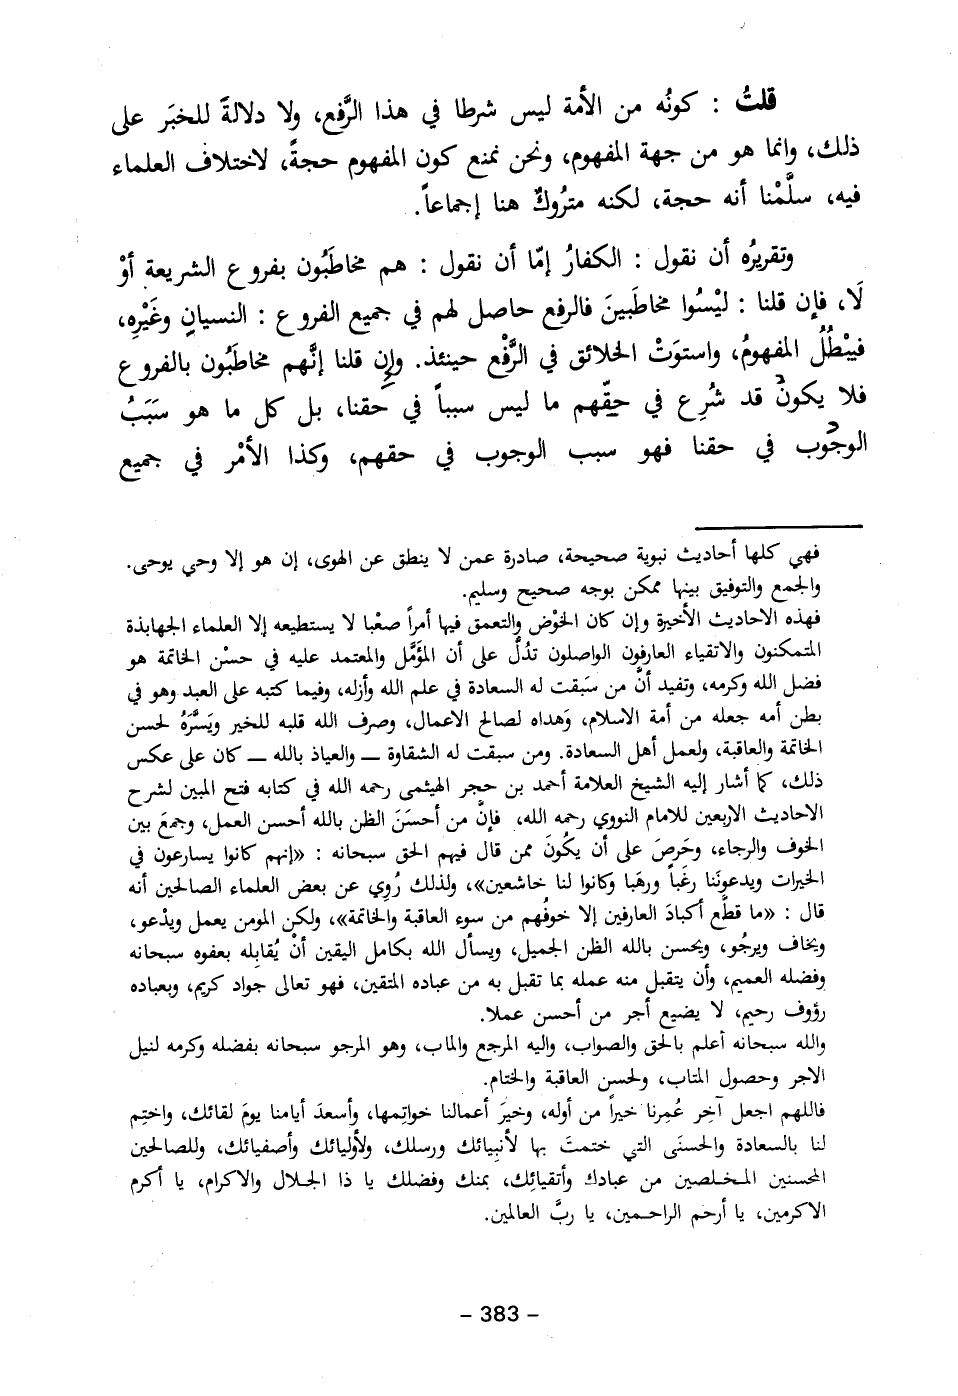 قلتُ : كونُه من الأمة ليس شرطا في هذا الرَّفع، ولا دلالةَ للخبَر على
ذلك، وانما هو من جهة المفهوم، ونحن نمنع كون المفهوم حجةً، لاختلاف العلماء
فيه، سلَّمْنا أنه حجة، لكنه مترُوكٌ هنا إجماعاً.
وتقريرُه أن نقول : الكفارُ إمّا أن نقول : هم مخاطَبُون بفروع الشريعة أوْ
لَا، فإن قلنا : ليْسُوا مخاطَبينَ فالرفع حاصل لهم في جميع الفروع : النسيانِ وغَيْرِه،
فيبْطُلُ المفهومُ، واستوَتْ الخلائق في الرَّفْع حينئذ. وإن قلنا إنَّهم مخاطَبُون بالفروع
فلا يكونُ قد شُرِع في حقِّهم ما ليس سبباً في حقنا، بل كل ما هو سَبَبُ
الوجُوب في حقنا فهو سبب الوجوب في حقهم، وكذا الأمْر في جميع
فهي كلها أحاديث نبوية صحيحة، صادرة عمن لا ينطق عن الهوى، إن هو إلا وحي يوحى.
والجمع والتوفيق بينها ممكن بوجه صحيح وسليم.
فهذه الاحاديث الأخيرة وإن كان الخوْض والتعمق فيها أمراً صعْبا لا يستطيعه إلا العلماء الجهابذة
المتمكنون والاتقياء العارفون الواصلون تدُلّ على أن المؤَمَّل والمعتمد عليه في حسْن الخاتمة هو
فضل الله وكرمه، وتفيد أنَّ من سَبَقت له السعادة في علم الله وأزله، وفيما كتبه على العبد وهو في
بطن أمه جعله من أمة الاسلام، وَهداه لصالح الاعمال، وصرف الله قلبه للخير ويَسَّرَهُ لحسن
الخاتمة والعاقبة، ولعمل أهل السعادة. ومن سبقت له الشقاوة ــ والعياذ بالله ــ كان على عكس
ذلك، كما أشار إليه الشيخ العلامة أحمد بن حجر الهيثمى رحمه الله في كتابه فتح المبين لشرح
الاحاديث الاربعين للامام النووي رحمه الله، فإنَّ من أحسَنَ الظن بالله أحسن العمل، وجمعَ بين
الخوف والرجاء، وحَرصَ على أن يكُونَ ممن قال فيهم الحق سبحانه : «إنهم كانوا يسارعون في
الخيرات ويدعونَنا رغَباً ورهَبا وكانوا لنا خاشعين»، ولذلك رُوِي عن بعض العلماء الصالحين أنه
قال : «ما قطَّع أكبادَ العارفين إلا خوفُهم من سوء العاقبة والخاتمة»، ولكن المومن يعمل ويدْعو،
ويخاف ويرجُو، ويحسن بالله الظن الجميل، ويسأل الله بكامل اليقين أنْ يُقابِله بعفوه سبحانه
وفضله العميم، وأن يتقبل منه عمله بما تقبل به من عباده المتقين، فهو تعالى جواد كريم، وبعباده
رؤوف رحيم، لا يضيع أجر من أحسن عملا.
والله سبحانه أعلم بالحق والصواب، واليه المرجع والماب، وهو المرجو سبحانه بفضله وكرمه لنيل
الاجر وحصول المتاب، ولحسن العاقبة والختام.
فاللهم اجعل آخِر عُمِرنا خيراً من أوله، وخيرَ أعمالنا خواتِمها، وأسعدَ أيامنا يومَ لقائك، واختِم
لنا بالسعادة والحسنَى التي ختمتَ بها لأنبِيائك ورسلك، ولأوليائك وأصفيائك، وللصالحين
المحسنين المخلصين من عبادك وأتقيائِك، بمنك وفضلك يا ذا الجلال والاكرام، يا أكرم
الاكرمين، يا أرحم الراحمين، يا ربَّ العالمين.
- 383 -